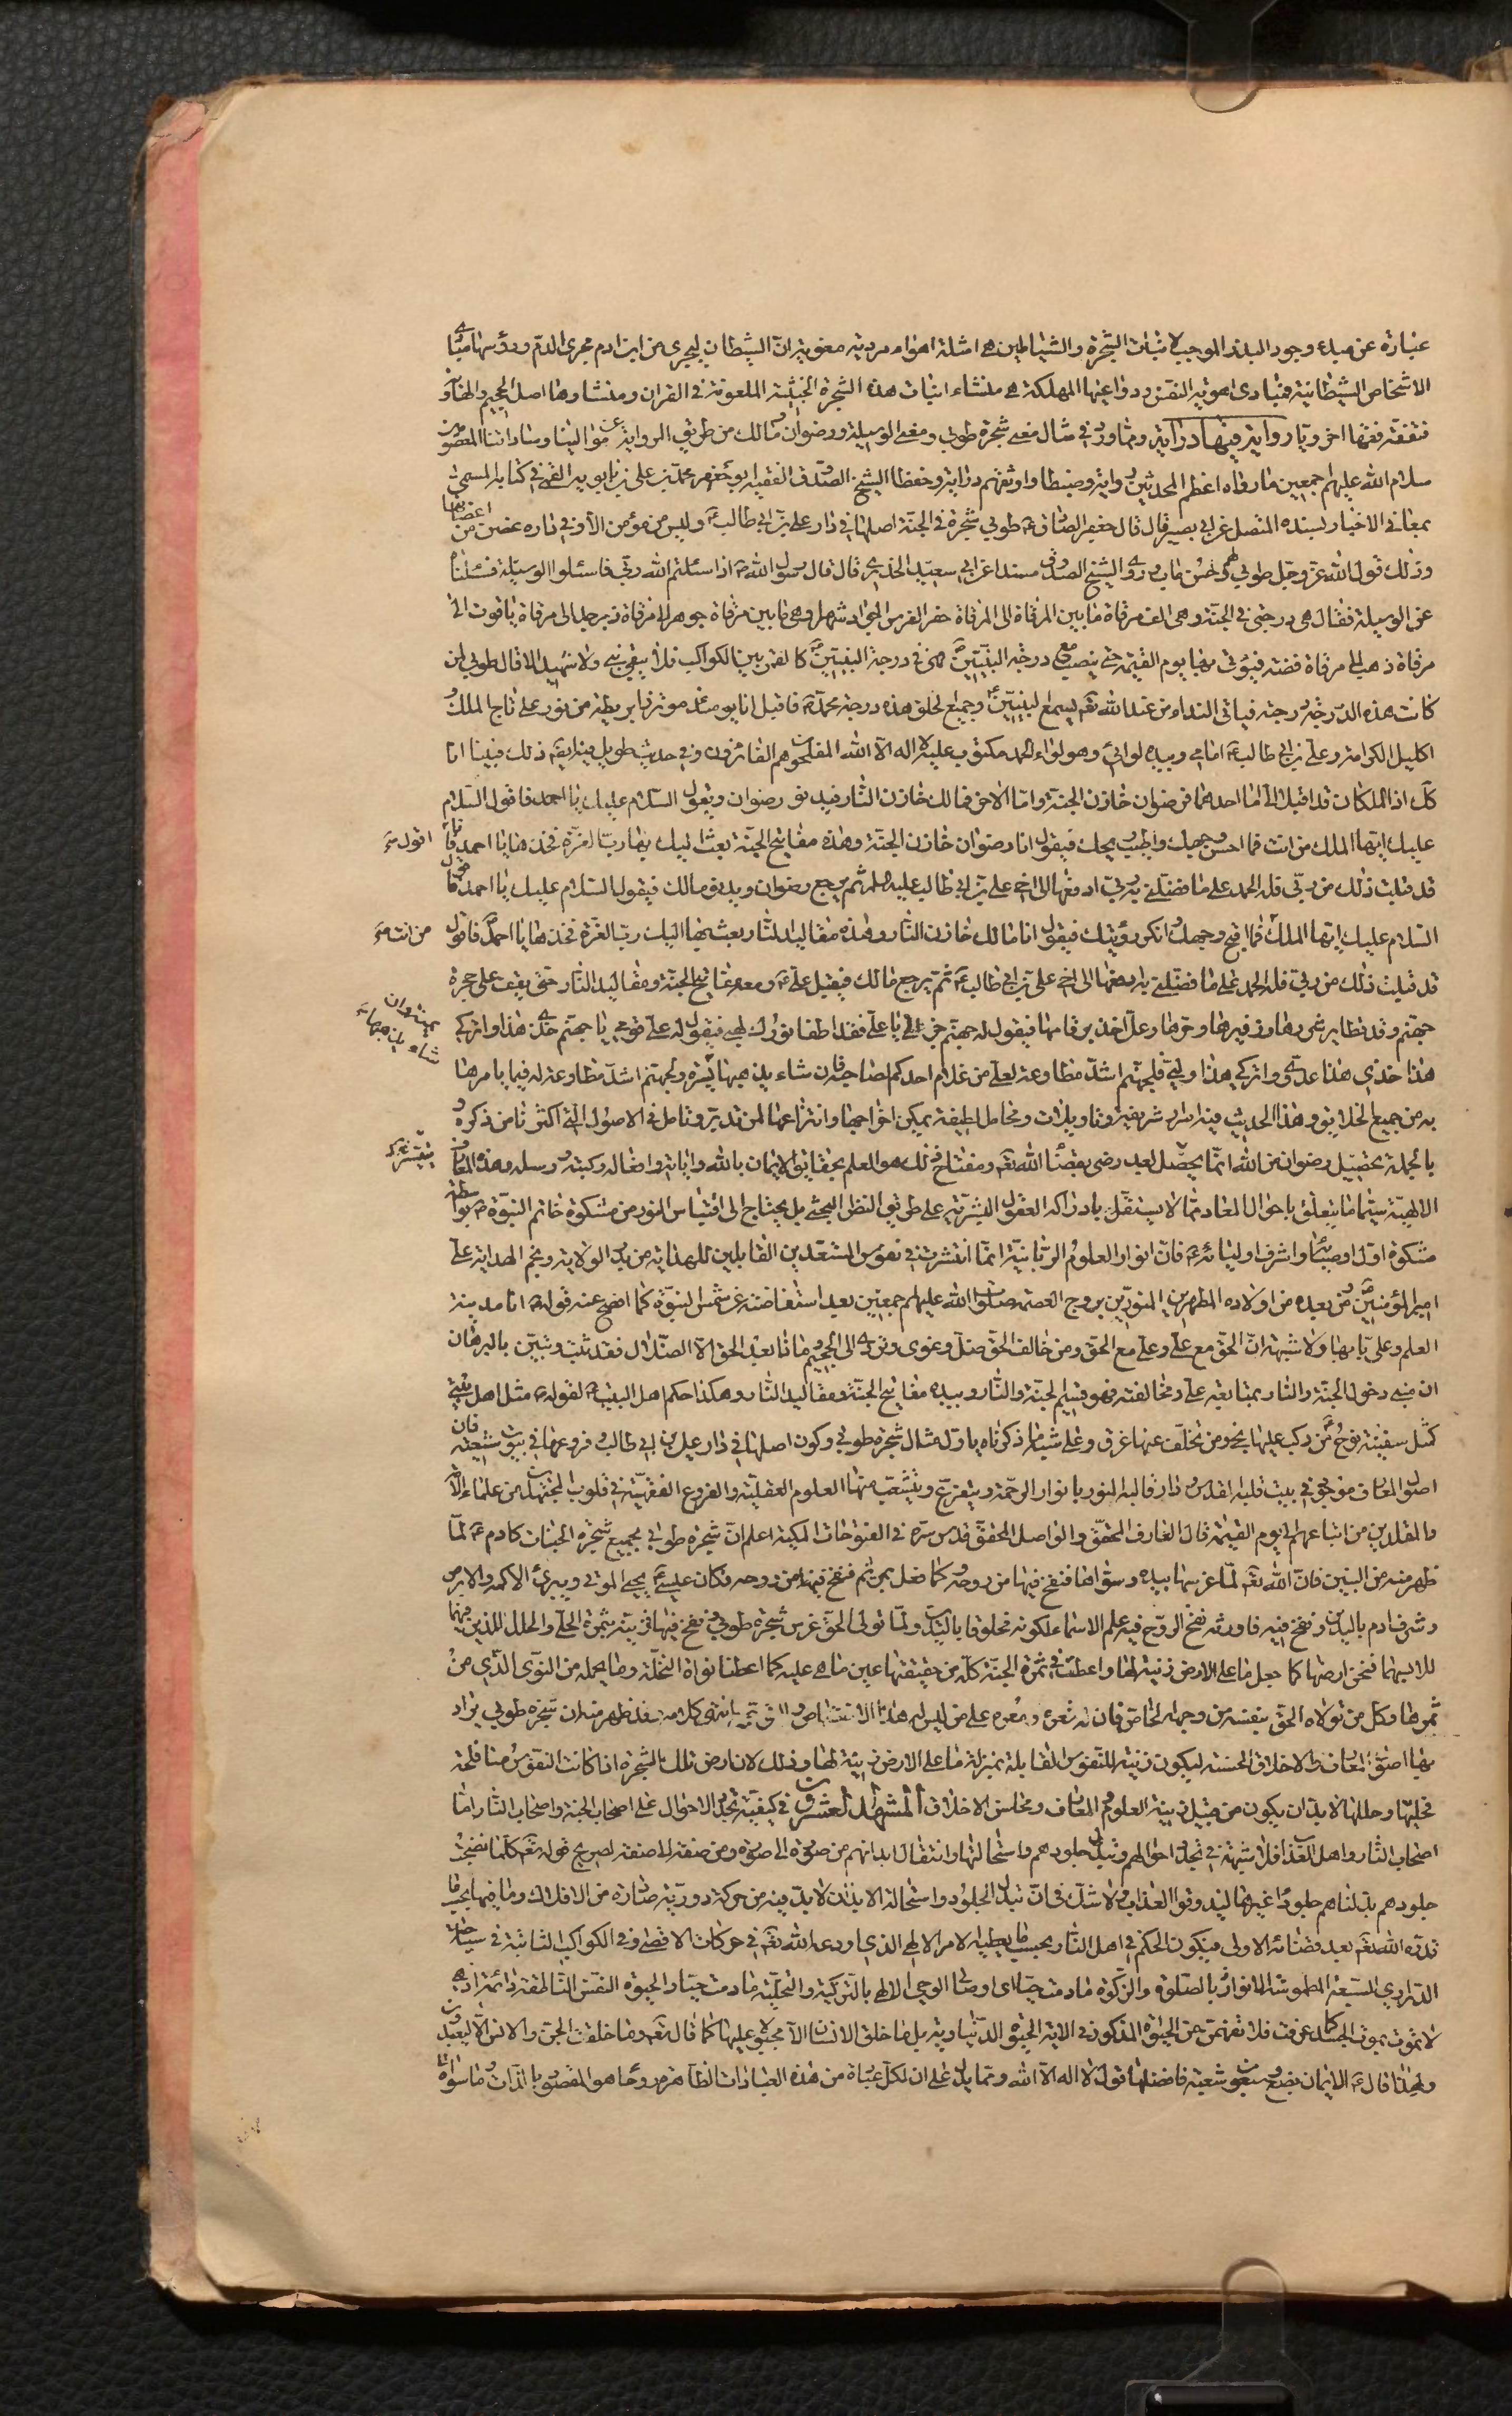 عبارة عن مبدء وجود البدن الموجب لانبات الشجرة والشياطين هي امثلة اهواء مردية مغوية ان الشيطان ليجري من ابن ادم مجرى الدم ورؤسها مبادي
الاشخاص الشيطانية فمبادى اهوية النفس ودواعيها المهلكة هي منشاء انبات هذه الشجرة الخبيثة الملعونة في القران ومنشاؤها اصل الجحيم والهاوية
سلام الله عليهم اجمعين ما رواه اعظم المحدثين رواية وضبطا واوثقهم دراية وحفظا الشيخ الصدوق الفقيه ابو جعفر محمد بن علي بن بابويه القمي في كتابه المسمى
بمعاني الاخبار بسنده المتصل عن ابي بصير قال قال جعفر الصادق ع طوبي شجرة في الجنة اصلها في دار علي بن ابي طالب ع وليس من مؤمن الا وفي داره غصن من اغصانها
وذلك قول الله عز وجل طوبي لهم وحسن ماب وروى الشيخ الصدوق مسندا عن ابي سعيد الخدري قال قال رسول الله ص اذا سئلتم الله ربي فاسئلوا الوسيلة فسئلنا
عن الوسيلة فقال هي درجتي في الجنة وهي الف مرقاة ما بين المرقاة الى المرقاة حضر الفرس الجواد شهرا وهي ما بين مرقاة جوهر الى مرقاة زبرجد الى مرقاة ياقوت الى
مرقاة ذهب الى مرقاة فضة فيؤتى بها يوم القيمة حتى ينصب مع درجة النبيين فهي في درجة النبيين كالقمر بين الكواكب فلا يبقى نبي ولا شهيد الا قال طوبي لمن
كانت هذه الدرجة درجته فياتي النداء من عند الله تعم يسمع النبيين وجميع الخلق هذه درجة محمد ص فاقبل انا يومئذ موتزرا بريطة من نور علي تاج الملك
اكليل الكرامة وعلي بن ابي طالب ع امامي وبيده لوائي وهو لواء الحمد مكتوب عليه لا اله الا الله المفلحون هم الفائزون وفي حديث طويل ذلك فبينا انا
كك اذا الملكان قد اقبلا الى اما احدهما فرضوان خازن الجنة واما الاخر فمالك خازن النار فيدنو رضوان ويقول السلام عليك يا احمد فاقول السلام
عليك ايها الملك من انت فما احسن وجهك واطيب ريحك فيقول انا رضوان خازن الجنة وهذه مفاتيح الجنة بعث اليك بها رب العزة فخذها يا احمد
اقول
قد قبلت ذلك من ربي فله الحمد على ما فضلني به ربي ادفعها الى اخي علي بن ابي طالب عليه السلم ثم يرجع رضوان ويدنو مالك فيقول السلام عليك يا احمد فاقول
السلام عليك ايها الملك فما اقبح وجهك وانكر رؤيتك فيقول انا مالك خازن النار وهذه مقاليد النار بعث بها اليك رب العزة فخذها يا احمد فاقول
من انت
قد قبلت ذلك من ربي فله الحمد على ما فضلني به ادفعها الى اخي علي بن ابي طالب ع ثم يرجع مالك فيقبل علي ع ومعه مفاتيح الجنة ومقاليد النار حتى يقف على حجزة
جهنم وقد تطاير شررها وزفيرها وحرها وعلي اخذ بزمامها فيقول له جهنم جزني يا علي فقد اطفا نورك لهبي فيقول لها علي قري يا جهنم خذي هذا واتركي
هذا خذي هذا عدوي واتركي هذا وليي فلجهنم اشد مطاوعة لعلي من غلام احدكم لصاحبه فان شاء يذهبها يسرة ولجهنم اشد مطاوعة له فيما يامرها
به من جميع الخلايق وهذا الحديث فيه اسرار شريفة وتاويلات ومحامل لطيفة يمكن اخراجها وانتزاعها لمن تدبر وتامل في الاصول التي اكثرنا من ذكره
بالجملة تحصيل رضوان من الله انما يحصل لعبد رضي بقضاء الله تعم ومفتاح ذلك هو العلم بحقايق الايمان بالله واياته وافعاله وكتبه ورسله وهذه المعارف
الالهية سيما ما يتعلق باحوال المعاد مما لا يستقل بادراكه العقول البشرية على طريق النظر البحثي بل يحتاج الى اقتباس النور من مشكوة خاتم النبوة ص بواسطة
مشكوة اول اوصيائه واشرف اوليائه ع فان انوار العلوم الربانية انما انتشرت في نفوس المستعدين القابلين للهداية من بدر الولاية ونجم الهداية علي
امير المؤمنين ومن بعده من اولاده المطهرين المنورين بروج العصمة صلوات الله عليهم اجمعين بعد استفاضته عن شمس النبوة كما افصح عنه قوله ص انا مدينة
العلم وعلي بابها ولا شبهة ان الحق مع علي وعلي مع الحق ومن خالف الحق ضل وغوى وتردى الى الجحيم ماذا بعد الحق الا الضلال فقد ثبت وتبين بالبرهان
ان مبنى دخول الجنة والنار بمتابعة علي ومخالفته فهو قسيم الجنة والنار وبيده مفاتيح الجنة ومقاليد النار وهكذا حكم اهل البيت لقوله ص مثل اهل بيتي
كمثل سفينة نوح من ركب عليها نجى ومن تخلف عنها غرق وعلى شاكلة ما ذكرناه ياول مثال شجرة طوبي وكون اصلها في دار علي بن ابي طالب وفروعها في بيوت شيعته فان
اصول المعارف موجودة في بيت قلبه القدس ودار قالبه المنور بانوار الرحمة ويتفرع ويتشعب منها العلوم العقلية والفروع الفقهية في قلوب المجتهدين من علماء الامة
والمقلدين من اتباعهم الى يوم القيمة قال العارف المحقق والواصل المحقق قدس سره في الفتوحات المكية اعلم ان شجرة طوبي لجميع شجرة الجنات كادم ع لما
ظهر منه من البنين فان الله تعم لما غرسها بيده وسواها فنفخ فيها من روحه كما فعل بمريم فنفخ فيها من روحه فكان عيسى يحيي الموتى ويبرئ الاكمه والابرص
وشرف ادم باليدين ونفخ فيه فاورثه نفخ الروح فيه علم الاسماء لكونه مخلوقا باليدين ولما تولى الحق غرس شجرة طوبي ونفخ فيها زينه بثمرة الحلي والحلل اللذين فيهما
للابسهما فنحن ارضها كما جعل ما على الارض زينة لها واعطت في ثمرة الجنة كله من حقيقتها عين ما هي عليه كما اعطتنا نواة النخلة وما يحمله من النوى الذي من
ثمرها وكل من تولاه الحق بنفسه من وجهه الخاص فان له شفوف ومزية على من ليس له هذا الاختصاص انتهى كلامه فقد ظهر منه ان شجرة طوبي يراد
بها اصول المعارف والاخلاق الحسنة ليكون زينة للنفوس القابلة بمنزلة ما على الارض زينة لها وذلك لان ارض تلك الشجرة اذا كانت النفوس
فحليها وحللها لا بد ان يكون من قبيل زينة العلوم والمعارف ومحاسن الاخلاق المشهد العشرون في كيفية تجدد الاحوال على اصحاب الجنة واصحاب النار اما
اصحاب النار واهل العذاب فلا شبهة في تجدد احوالهم وتبدل جلودهم واستحالتها وانتقال ابدانهم من صورة الى صورة ومن صفة الى صفة لصريح قوله تعم كلما نضجت
جلودهم بدلناهم جلودا غيرها ليذوقوا العذاب ولا شك في ان تبدل الجلود واستحالة الابدان لا بد فيه من حركة دورية صادرة من الافلاك وما فيها بحسب ما
قدره الله تعم بعد قضائه الاولى فيكون الحكم في اهل النار بحسب ما يعطيه الامر الالهي الذي اودعه الله تعم في حركات الاقصى وفي الكواكب الثابتة في سباحة
الدراري السبعة المطموسة الانوار
لا تموت بموت الجسد كما عرفت فلا تفهمن من الحيوة المذكورة في الاية الحيوة الدنياوية بل ما خلق الانسان الا مجبولا عليها كما قال تعم وما خلقت الجن والانس الا ليعبدون
ولهذا قال ص الايمان بضع وسبعون شعبة فافضلها قول لا اله الا الله ومما يدل على ان لكل عبادة من هذه العبادات الظاهرة روحا هو المقصود بالذات وما سواه